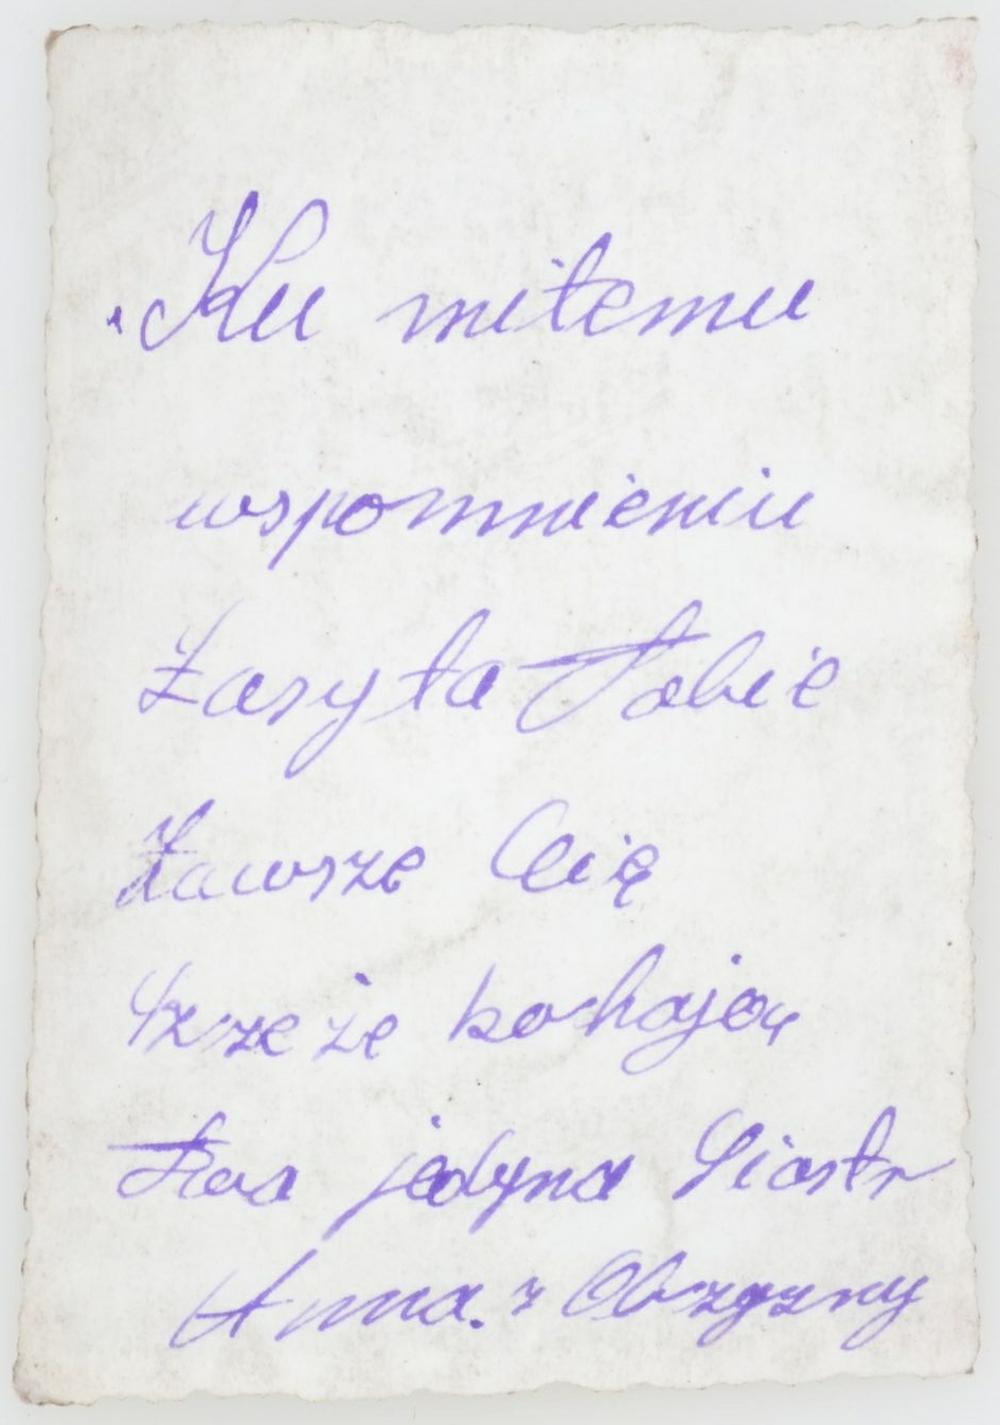 Ku miłemu
wspomnieniu
Zasyła Tobie
Zawsze Cię
Szczeże kochająą
Twa jedyna Siostr
Anna. z